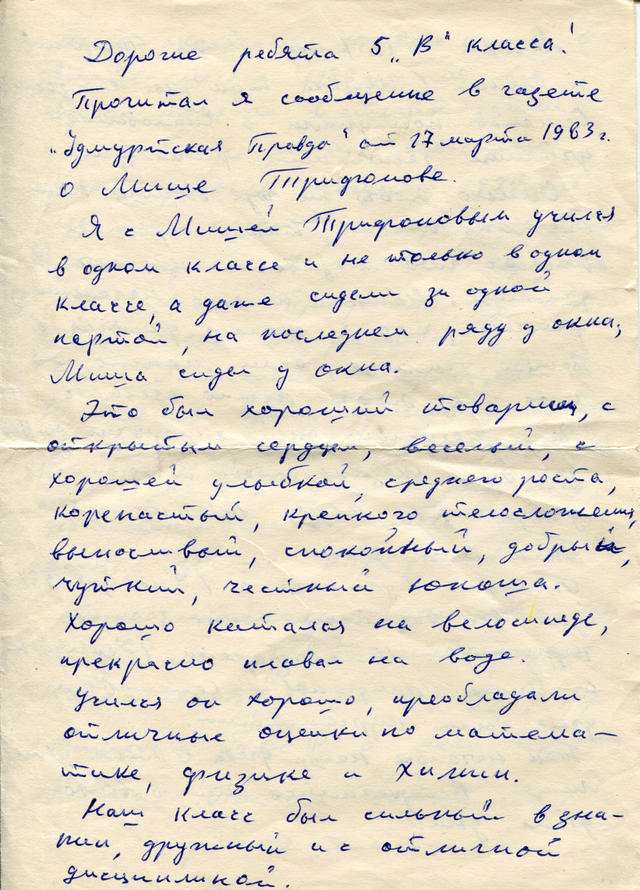 Дорогие ребята 5 „В" класса!
Прочитал я сообщение в газете
„Удмуртская Правда" от 27 марта 1983 г.
о Мише Трифонове.
Я с Мишей Трифоновым учился
в одном классе и не только в одном
классе, а даже сидели за одной
партой, на последнем ряду у окна,
Миша сидел у окна.
Это был хороший товарищ, с
открытым сердцем, веселый, с
хорошей улыбкой, среднего роста,
коренастый, крепкого телосложения,
выносливый, спокойный, добрый,
чуткий, честный юноша.
Хорошо катался на велосипеде,
прекрасно плавал на воде.
Учился он хорошо, преобладали
отличные оценки по матема-
тике, физике и Химии.
Наш класс был сильный в зна-
нии, дружный и с отличной
дисциплиной.